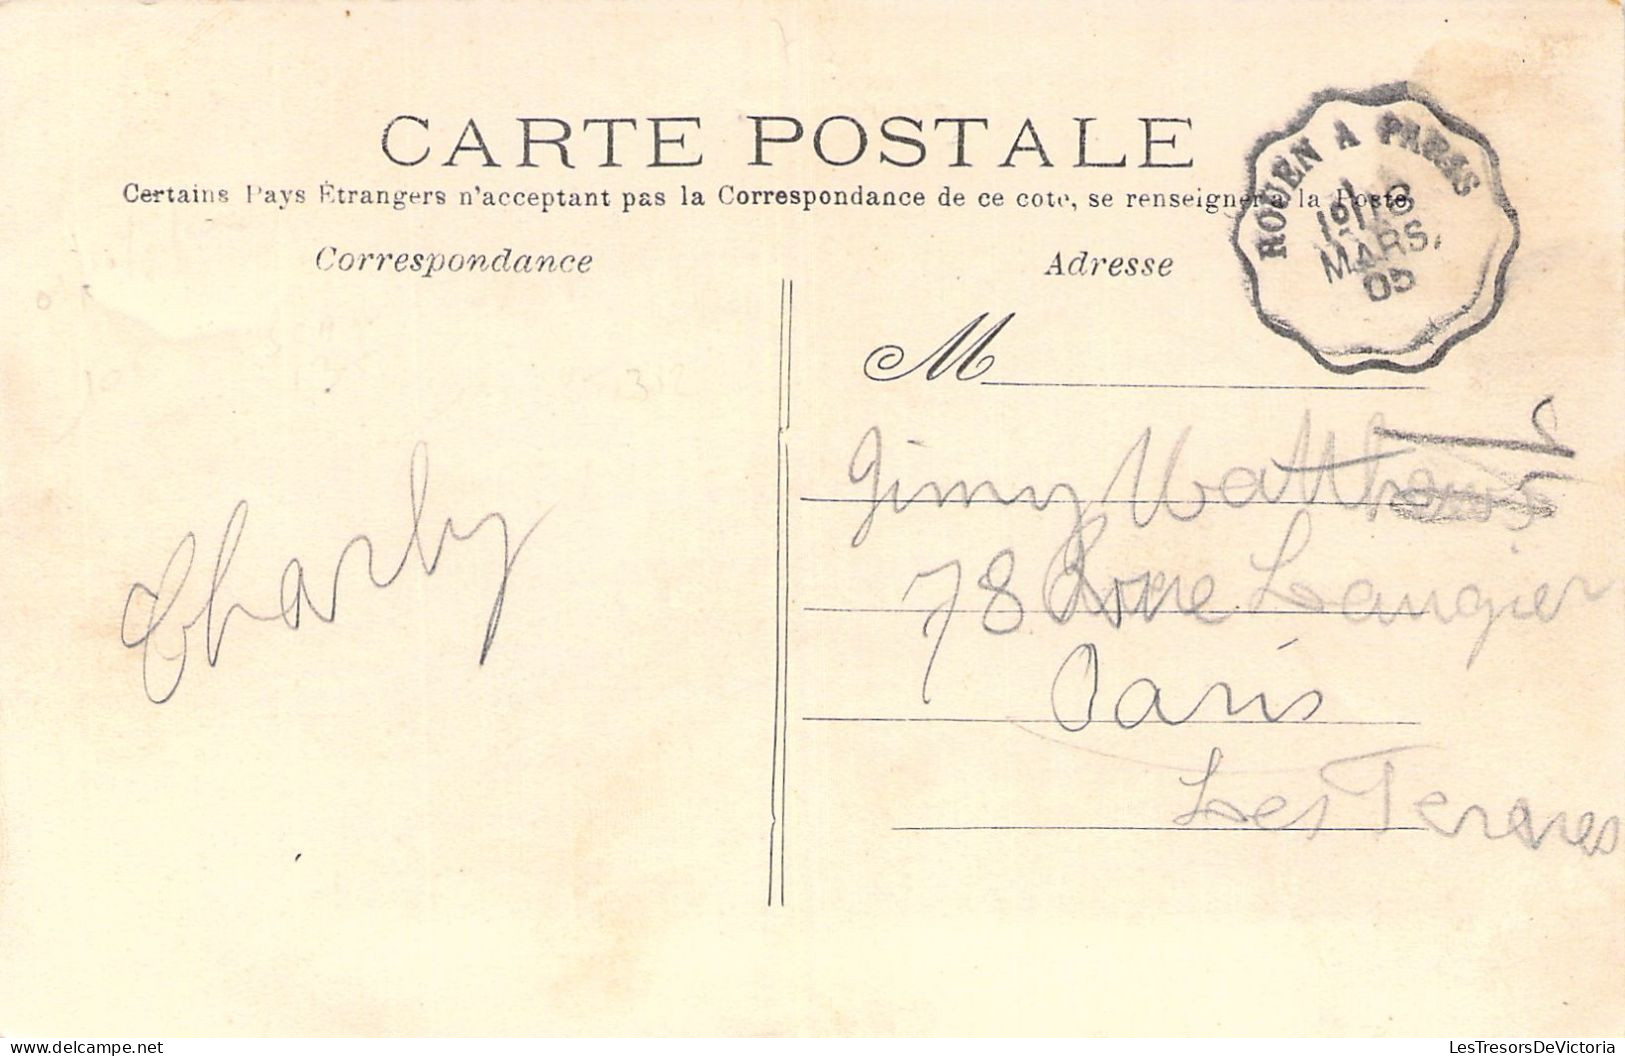 CARTE POSTALE
Certains Pays Étrangers n'acceptant pas la Correspondance de ce coté, se renseigner à la Poste
Correspondance
Adresse
ROUEN A PARIS
MARS
05
M
Gimy Matthews
78 Rue Laugier
Paris
Les Ternes
Charly
312
www.delcampe.net
LesTresorsDeVictoria